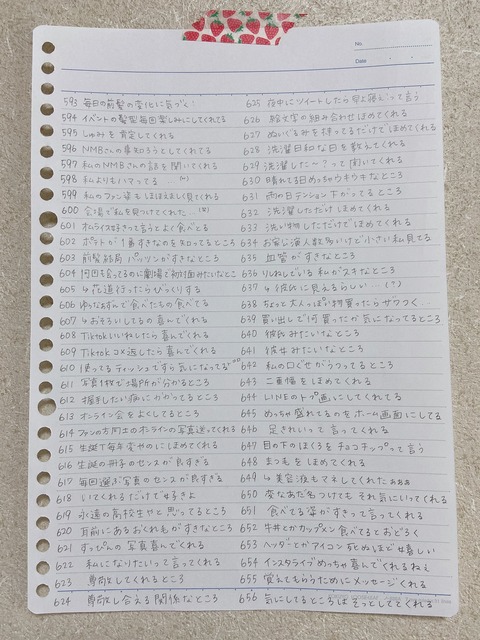 No.
Date
593 毎日の前髪の変化に気づく
594 イベントの髪型毎回楽しみにしてくれてる
595 しゅみを肯定してくれる
596 NMBさんの事知ろうとしてくれてる
597 私のNMBさんの話を聞いてくれる
598 私よりもハマってる
599 私のファン姿もほほえましく見てくれる
600 会場で私を見つけてくれた
601 オムライス好きって言うとよく食べとる
602 ポテトが1番すきなのを知ってるところ
603 前髪結局パッツンがすきなところ
604 何回も会ってるのに劇場で初対面みたいなとこ
605 花道行ったらびっくりする
606 ゆななんで食べたもの食べてる
607 おそろいしてるの喜んでくれる
608 Tiktokいいねしたら喜んでくれる
609 Tiktokコメ返したら喜んでくれる
610 使ってるティッシュですら気になってる
611 写真1枚で場所が分かるところ
612 握手したい病にかかってるところ
613 オンライン会をよくしてるところ
614 ファンの方同士のオンラインの写真送ってくれる
615 生誕T毎年変やのにほめてくれる
616 生誕の冊子のセンスが良すぎる
617 毎回選ぶ写真のセンスが良すぎる
618 いてくれるだけで好きよ
619 永遠の高校生やと思ってるところ
620 耳前にあるおくれ毛がすきなところ
621 すっぴんの写真喜んでくれる
622 私になりたいって言ってくれる
623 尊敬してくれるところ
624 尊敬し合える関係なところ
625 夜中にツイートしたら早よ寝ろって言う
626 絵文字の組み合わせほめてくれる
627 ぬいぐるみを持ってるだけでほめてくれる
628 洗濯日和な日を教えてくれる
629 洗濯した〜?って聞いてくれる
630 晴れてる日めっちゃウキウキなところ
631 雨の日テンション下がってるところ
632 洗濯しただけでほめてくれる
633 洗い物しただけでほめてくれる
634 お家に演人数多いけど小さい私見てる
635 血管がすきなところ
636 りんねしている私がスキなところ
637 彼氏に見えるらしい…(?)
638 ちょっと大人っぽい事買ったらザワつく…
639 買い出しで何買ったか気になってるところ
640 彼氏みたいなところ
641 彼女みたいなところ
642 私の口ぐせがうつってるところ
643 二重幅をほめてくれる
644 LINEのトプ画にしてくれてる
645 めっちゃ盛れてるのをホーム画面にしてる
646 足きれいって言ってくれる
647 目の下のほくろをチョコチップって言う
648 まつ毛をほめてくれる
649 美容液もマネしてくれた
650 変なあだ名つけてもそれ気にいってくれる
651 食べてる姿がすきって言ってくれる
652 牛丼とかカップメン食べてるとおどろく
653 ヘッダーとかアイコン私とぬほど嬉しい
654 インスタライブめっちゃ喜んでくれるねぇ
655 覚えてもらうためにメッセージくれる
656 気にしてるところはそっとしててくれる